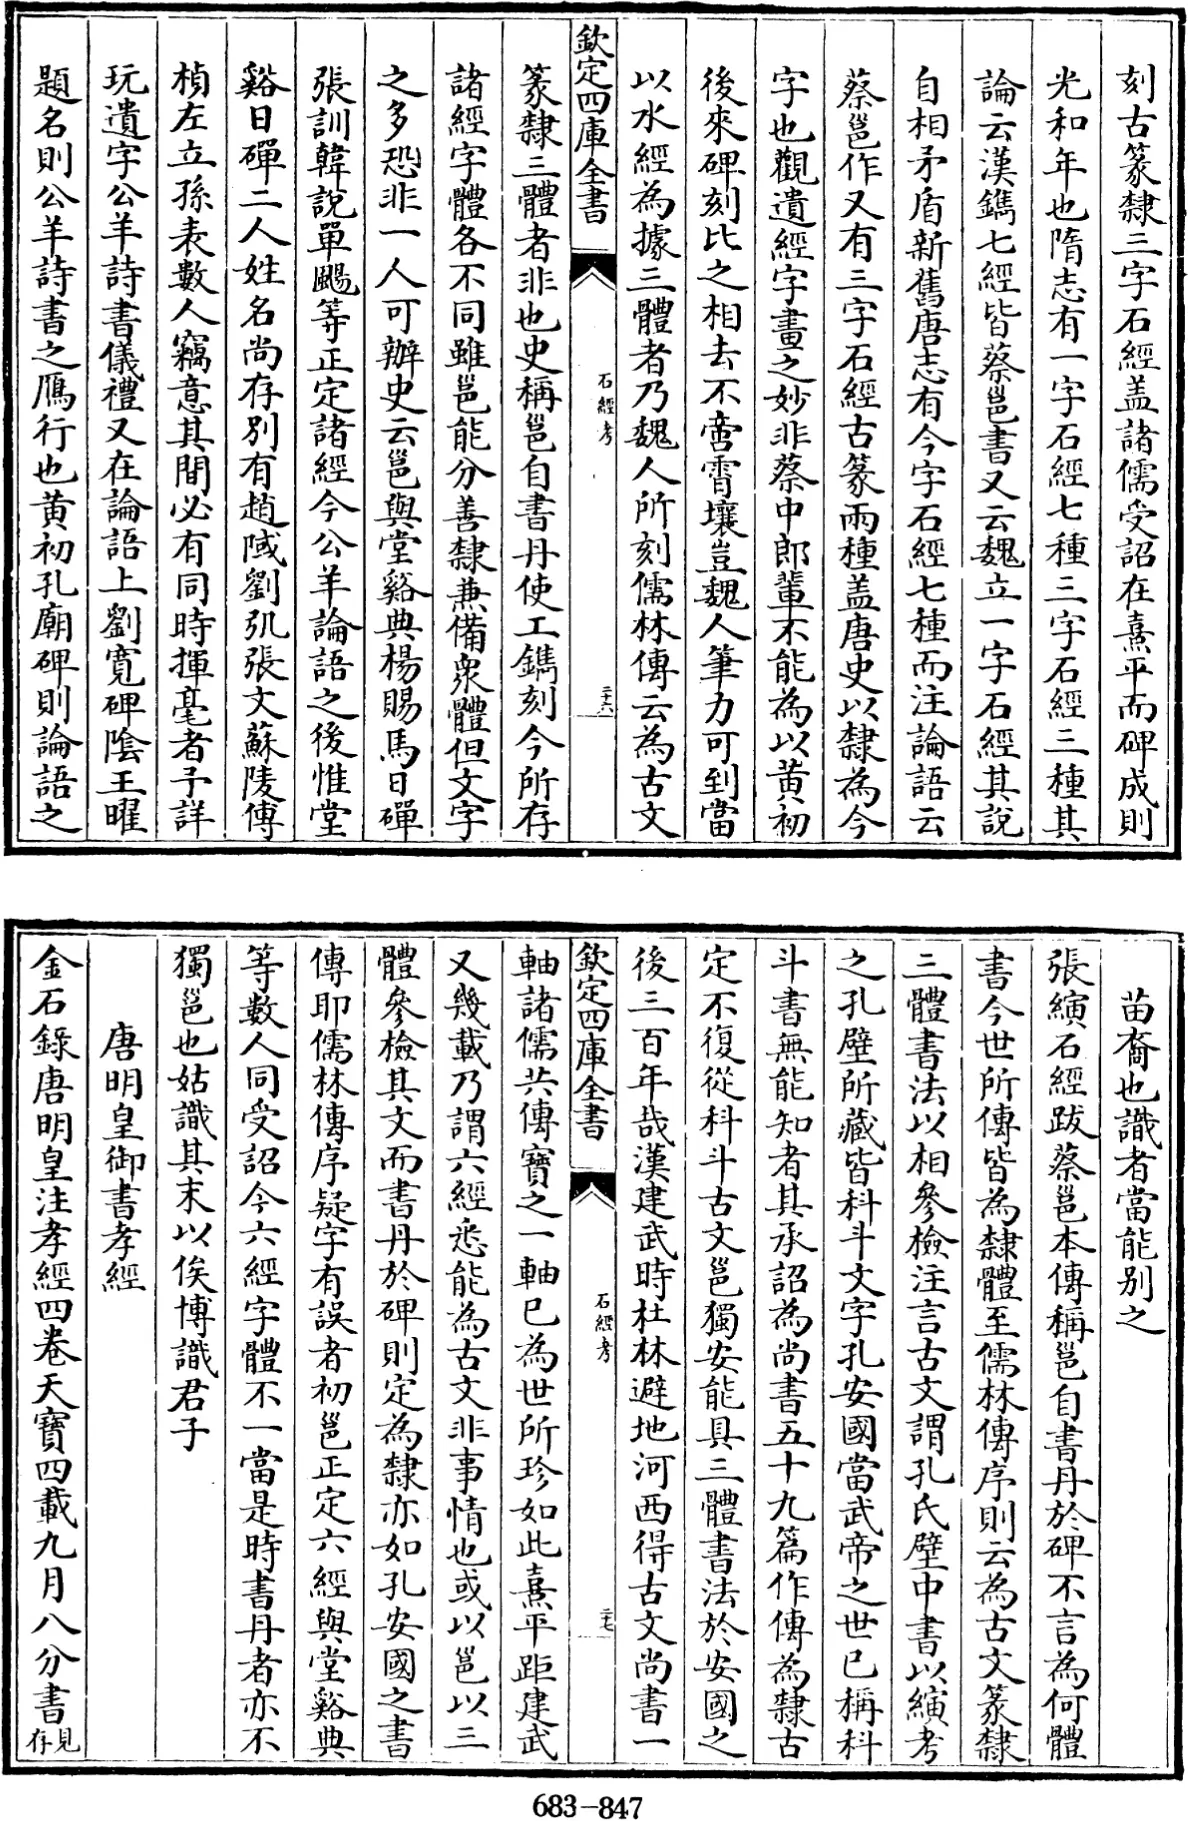 刻古篆隸三字石經盖諸儒受詔在熹平而碑成則
光和年也隋志有一字石經七種三字石經三種其
論云漢鐫七經皆蔡邕書又云魏立一字石經其說
自相矛盾新舊唐志有今字石經七種而注論語云
蔡邕作又有三字石經古篆兩種盖唐史以隸為今
字也觀遺經字畫之妙非蔡中郎輩不能為以黄初
後來碑刻比之相去不啻霄壤豈魏人筆力可到當
以水經為據三體者乃魏人所刻儒林傳云為古文
欽定四庫全書
石經考
二十六
篆隸三體者非也史稱邕自書丹使工鐫刻今所存
諸經字體各不同雖邕能分善隸兼備衆體但文字
之多恐非一人可辦史云邕與堂谿典楊賜馬日磾
張訓韓說單颺等正定諸經今公羊論語之後惟堂
谿日磾二人姓名尚存别有趙㦵劉弘張文蘇陵傅
楨左立孫表數人竊意其間必有同時揮毫者予詳
玩遺字公羊詩書儀禮又在論語上劉寬碑陰王曜
題名則公羊詩書之鴈行也黄初孔廟碑則論語之
苗裔也識者當能别之
張縯石經跋蔡邕本傳稱邕自書丹於碑不言為何體
書今世所傳皆為隸體至儒林傳序則云為古文篆隸
三體書法以相參檢注言古文謂孔氏壁中書以縯考
之孔壁所藏皆科斗文字孔安國當武帝之世已稱科
斗書無能知者其承詔為尚書五十九篇作傳為隸古
定不復從科斗古文邕獨安能具三體書法於安國之
後三百年哉漢建武時杜林避地河西得古文尚書一
欽定四庫全書
石經考
二十七
軸諸儒共傳寶之一軸已為世所珍如此熹平距建武
又幾載乃謂六經悉能為古文非事情也或以邕以三
體參檢其文而書丹於碑則定為隸亦如孔安國之書
傳耶儒林傳序疑字有誤者初邕正定六經與堂谿典
等數人同受詔今六經字體不一當是時書丹者亦不
獨邕也姑識其末以俟博識君子
唐明皇御書孝經
金石錄唐明皇注孝經四卷天寶四載九月八分書見存
683-847